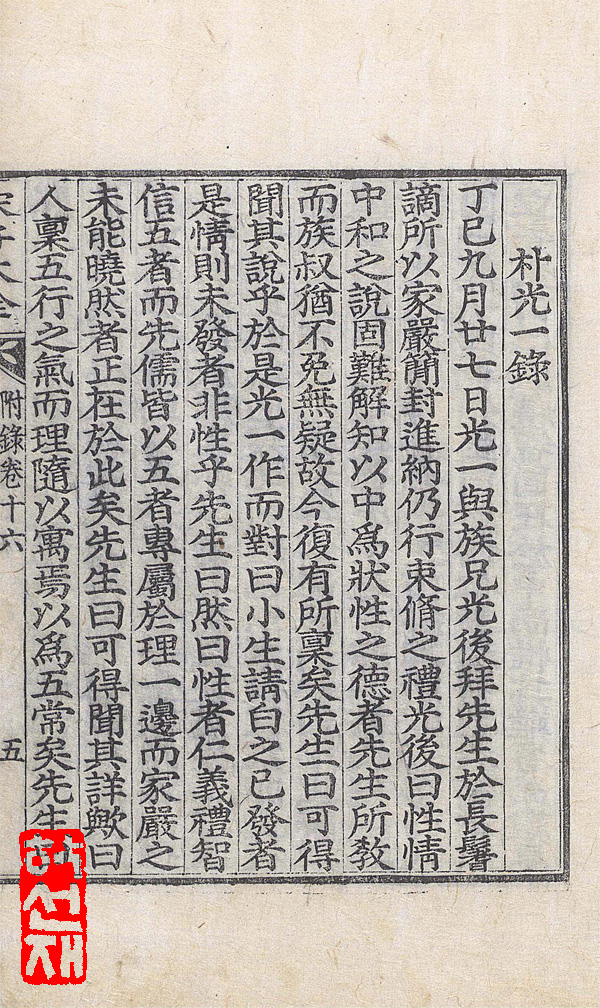 朴光一錄
丁巳九月廿七日光一與族兄光後拜先生於長鬐
謫所以家嚴簡封進納仍行束脩之禮光後曰性情
中和之說固難解知以中爲狀性之德者先生所敎
而族叔猶不免無疑故今復有所稟矣先生曰可得
聞其說乎於是光一作而對曰小生請白之已發者
是情則未發者非性乎先生曰然曰性者仁義禮智
信五者而先儒皆以五者專屬於理一邊而家嚴之
未能曉然者正在於此矣先生曰可得聞其詳歟曰
人稟五行之氣而理隨以寓焉以爲五常矣先生曰
宋子大全
附錄卷十六
五
한선재